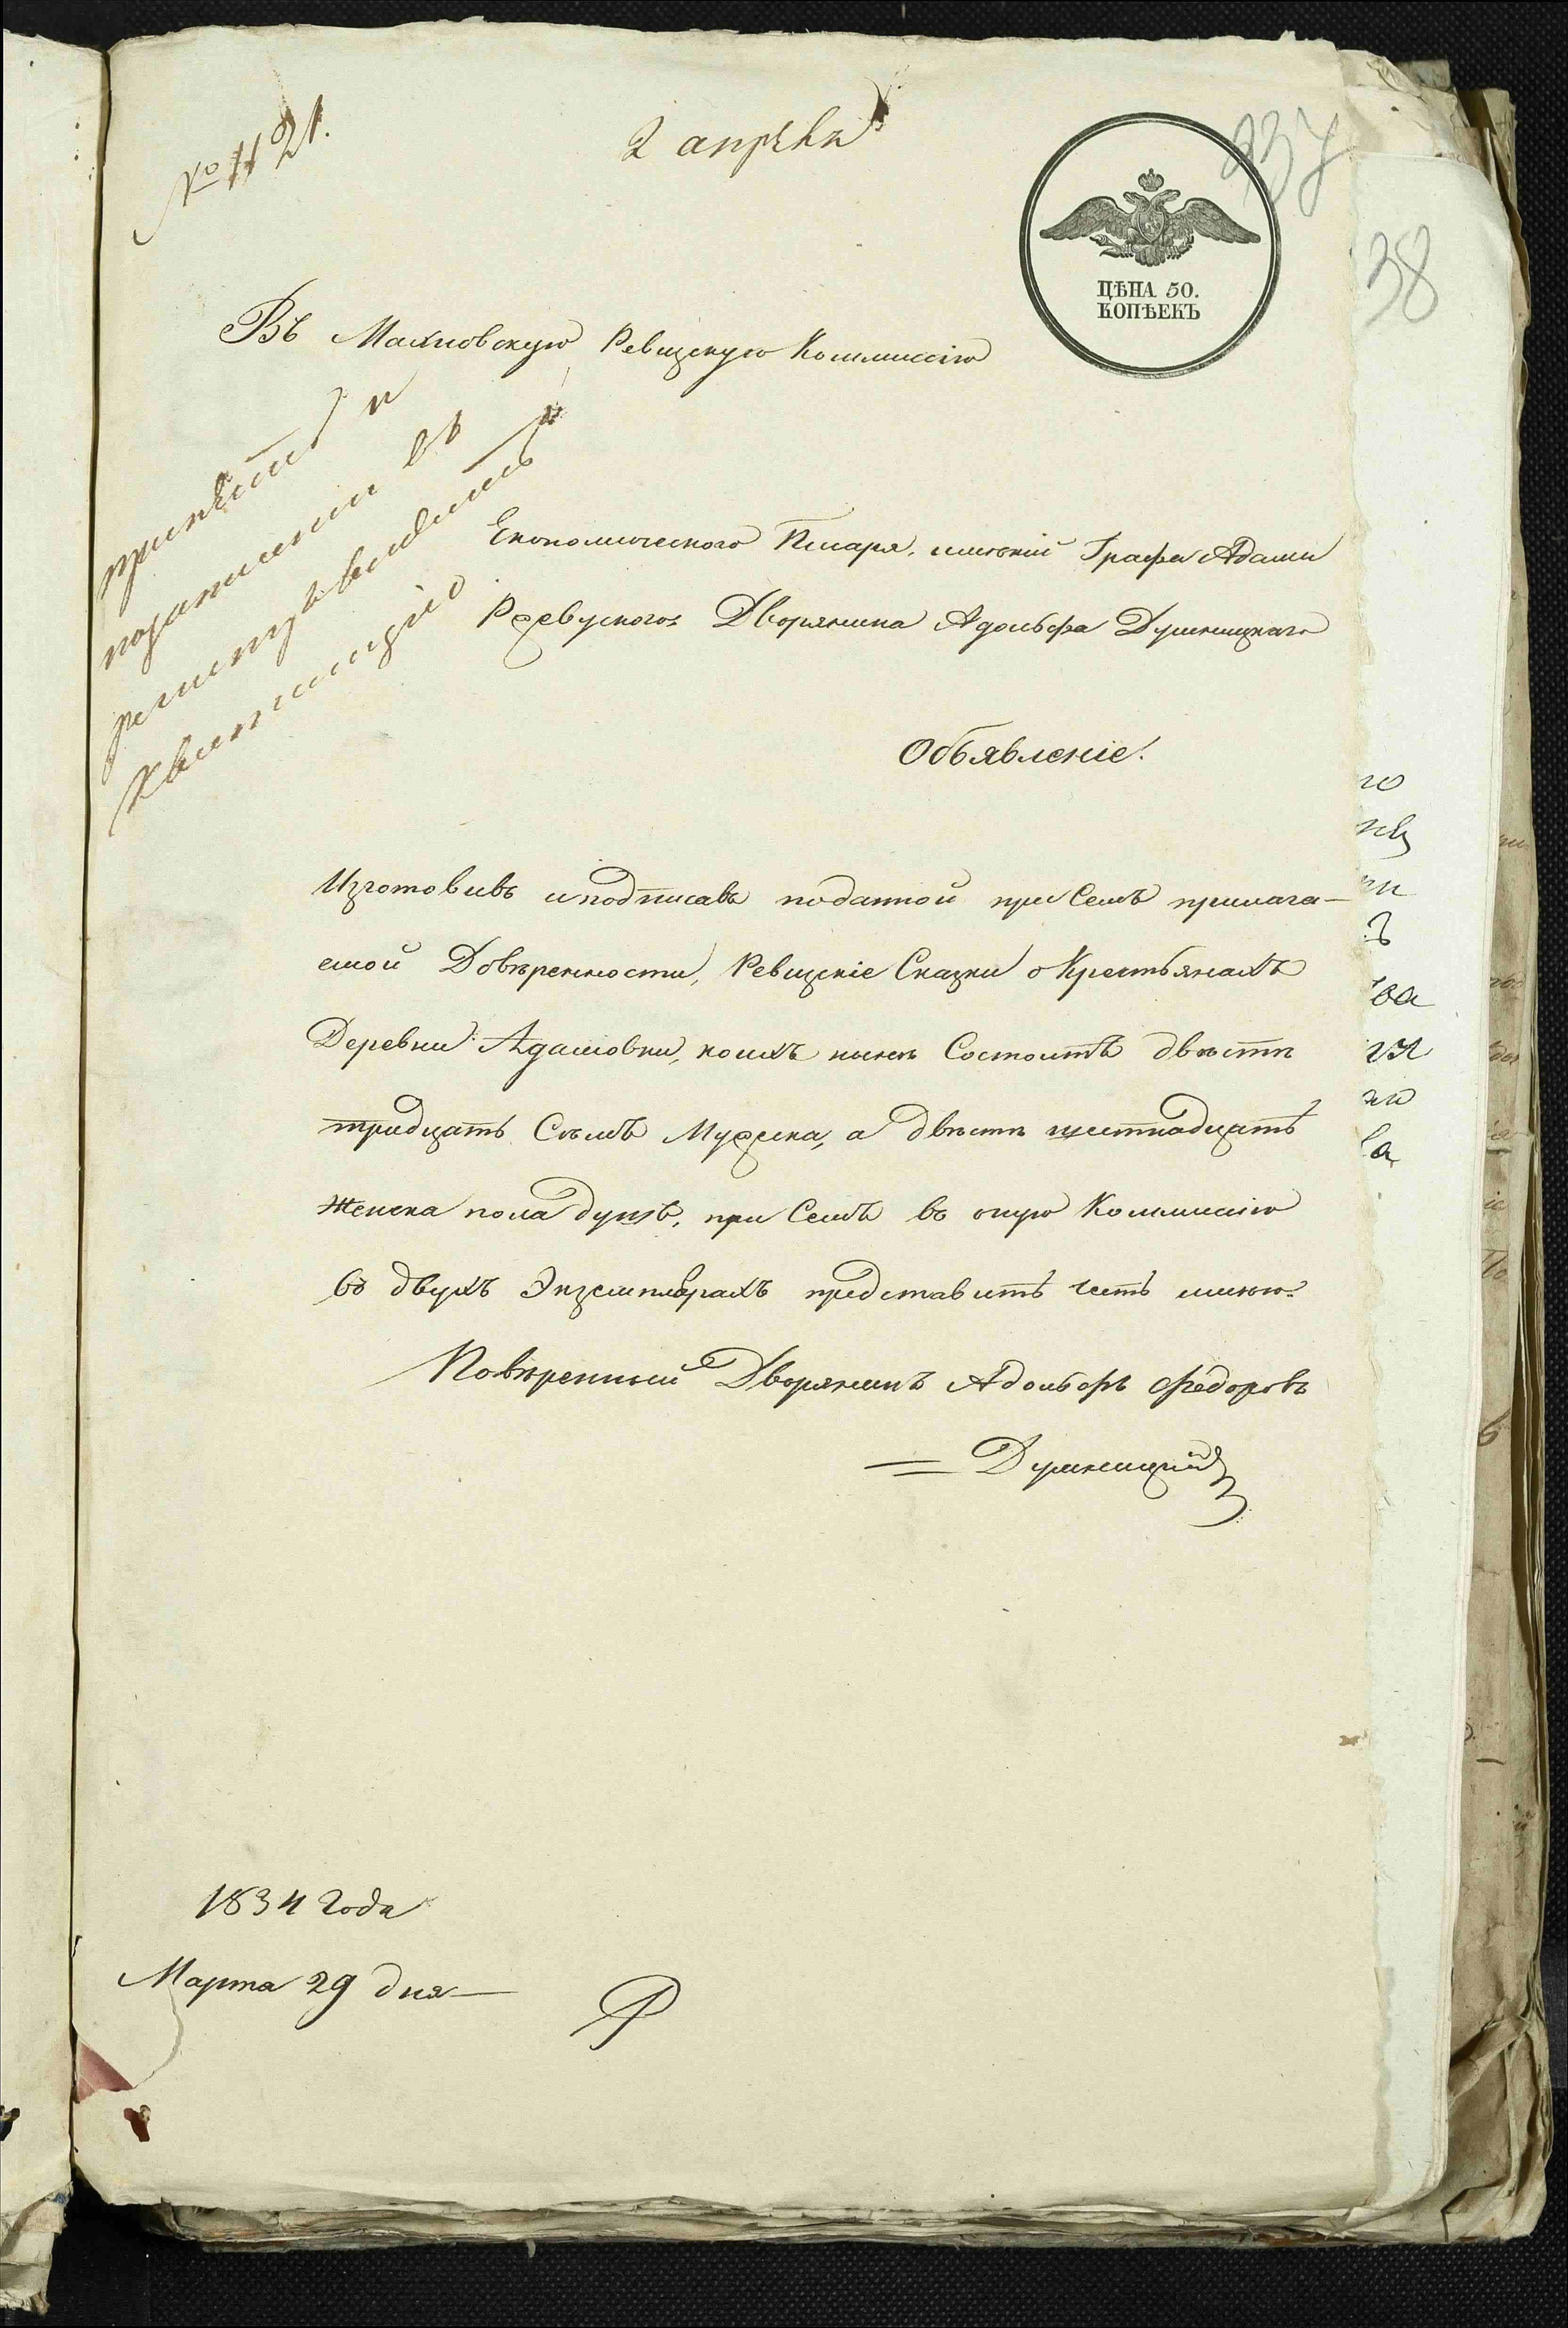 № 1121.
2 апрѣля
337
38
ЦѢНА 50.
КОПѢЕКЪ
Въ Махновскую Ревизскую Коммиссію
принять и
въ
квитанцію
Економического Писаря, имѣній Графа Адама
Ржевуского Дворянина Адольфа Душницкаго
Объявленіе.
Изготовивъ и подписавъ по данной при Семъ прилага-
емой Довѣренности, Ревизскіе Сказки о Крестьянахъ
Деревни Адамовки, коихъ нынѣ Состоитъ двѣсти
тридцать Сѣмъ Мужска, а двѣсти шестнадцать
Женска пола душъ, при Семъ въ оную Коммиссію
въ двухъ Экземплярахъ представить честь имѣю.
Повѣренный Дворянинъ Адольфъ Федоровъ
Душницкій
1834 Года
Марта 29 дня